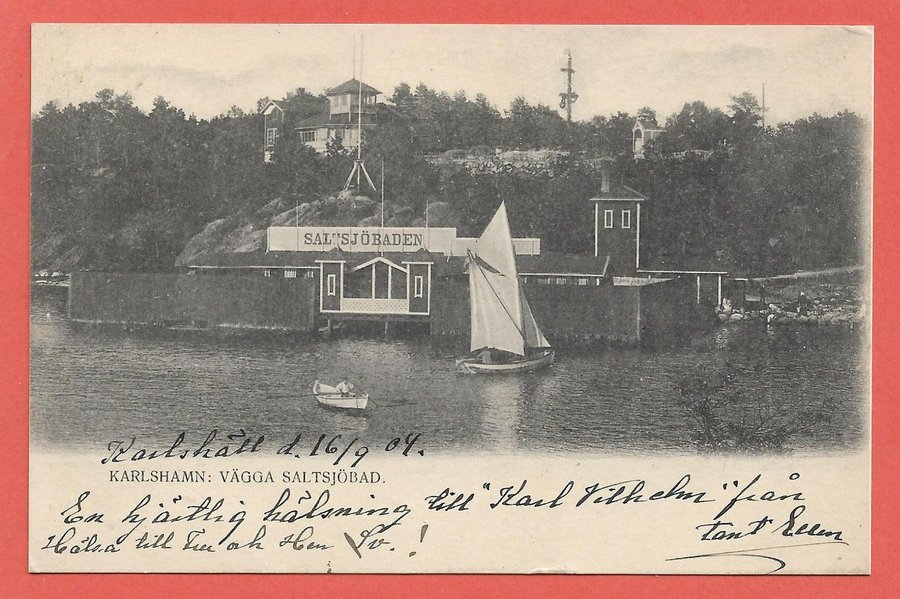 SALTSJÖBADEN
Karlshätt d. 16/9 04.
KARLSHAMN: VÄGGA SALTSJÖBAD.
En hjärtlig hälsning till "Karl Vilhelm" från
tant Ellen
Hälsa till och Sv. !